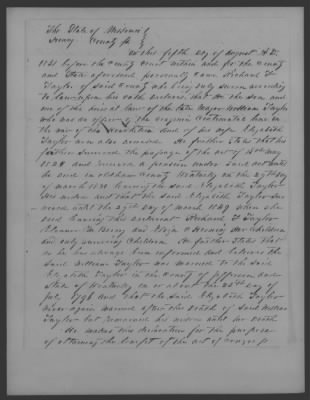 The State of Missouri
County ss
On this fifth day of August A.D.
1851 before the County Court within and for the County
and State aforesaid personally came Richard T
Taylor of said County who being duly sworn according
to law upon his oath declares that he is the son and
one of the heirs at law of the late Major William Taylor
who was an officer of the Virginia Continental line in
the war of the Revolution and of his wife Elizabeth
Taylor now also deceased He further states that his
father survived the passage of the act of 15 May
1828 and received a pension under said act until
he died in Oldham County Kentucky on the day
of March 1830 leaving the said Elizabeth Taylor
his widow and that the said Elizabeth Taylor
until the 27th day of March 1849 when she
died leaving this declarant Richard T Taylor
Eleanor M Berry and Eliza her children
and only surviving children He further states that
as he has always been informed and believes the
said William Taylor was married to the said
Elizabeth Taylor in the County of Jefferson and
State of Kentucky on or about the day of
July 1796 and that the said Elizabeth Taylor
never again married after the death of said William
Taylor but remained his widow until her death
He makes this declaration for the purpose
of obtaining the benefit of the act of Congress